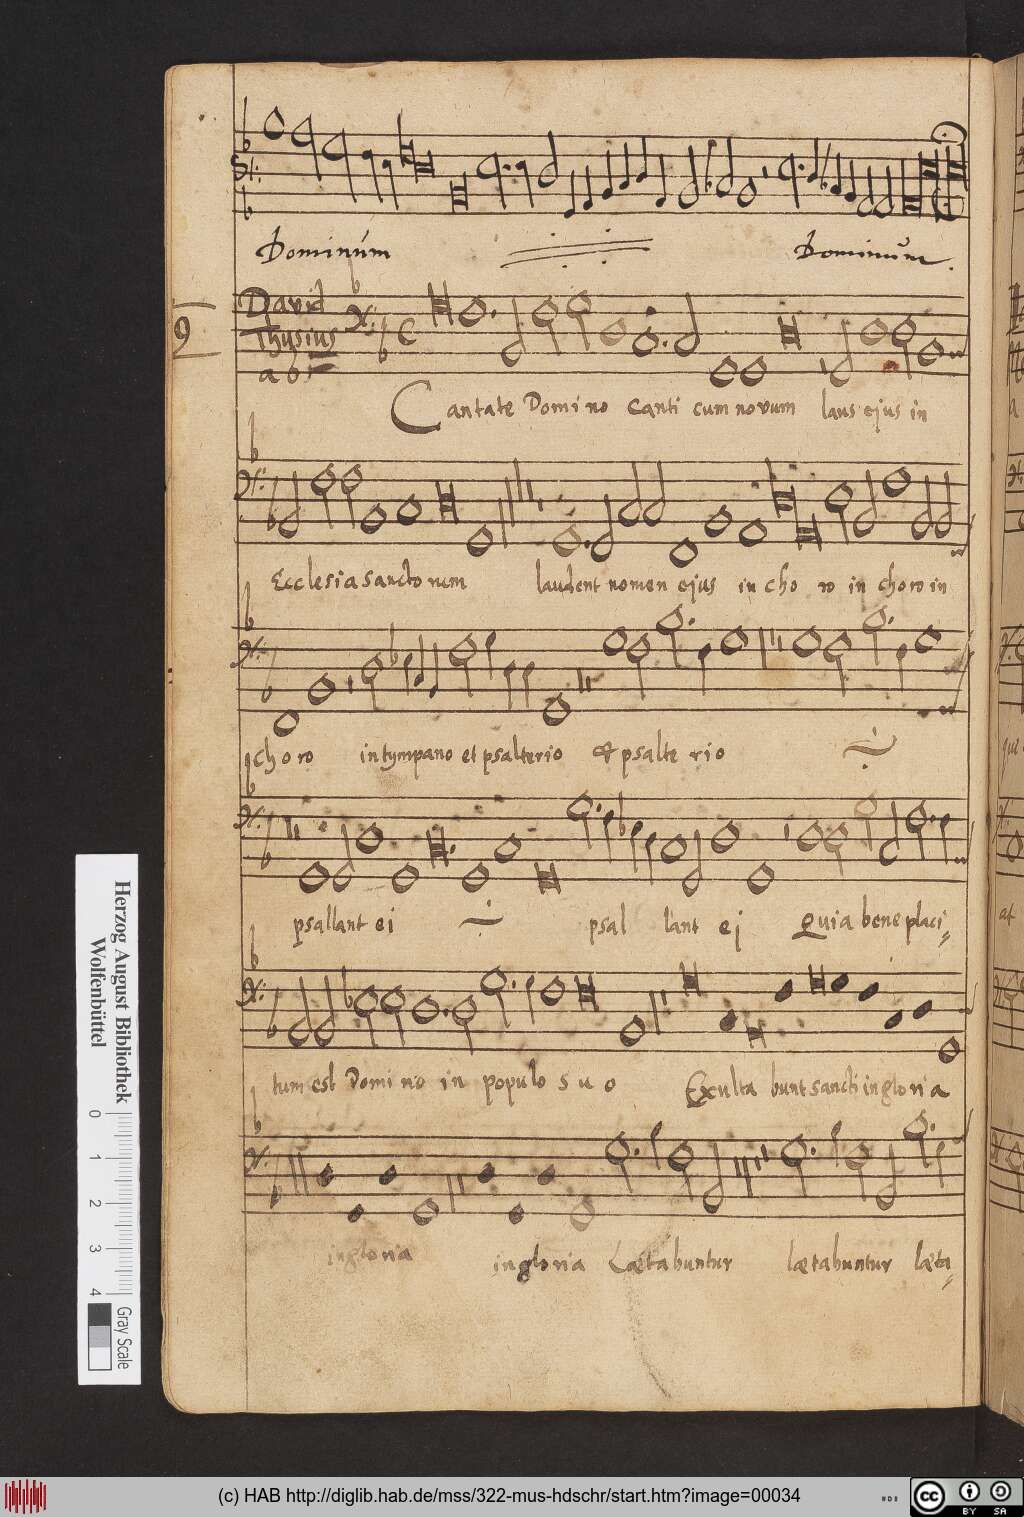 Dominum Dominum.
9
David
Thusius
a 6.
Cantate Domino canticum novum laus ejus in
Ecclesia sanctorum laudent nomen ejus in choro in choro in
choro in tympano et psalterio & psalterio
psallant ei psallant ei Quia bene placi-
tum est Domino in populo suo Exultabunt sancti in gloria
in gloria in gloria Lætabuntur lætabuntur læta-
Herzog August Bibliothek
Wolfenbüttel
0 1 2 3 4
Gray Scale
(c) HAB http://diglib.hab.de/mss/322-mus-hdschr/start.htm?image=00034
cc BY SA